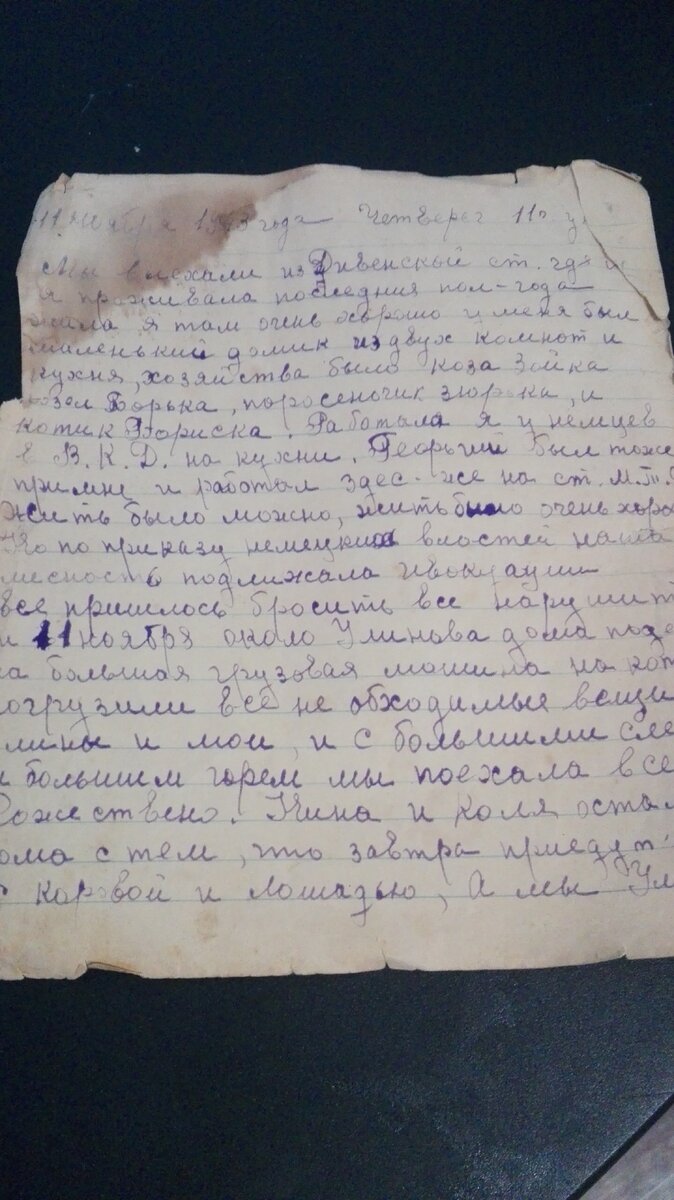 11 ноября 1943 года Четверег 11
Мы выехали из Дивенский ст. где
я проживала последния пол-года
жила я там очень хорошо у меня был
маленький домик из двух комнот и
кухня, хозяйства было коза Зойка
козел Борька, поросеночик зюрька, и
котик Бориска. Работала я у немцев
в В.К.Д. на кухни. Георгий был тоже
примне и работал здес-же на ст. М.
Жить было можно, жить было очень хоро
Но по приказу немецких влостей наша
месность подлижала ивокуации
все пришлось бросить все нарушит
и 11 ноября около Улинова дома подо
ла большая грузовая машина на кот
огрузили все не обходимые вещи
лины и мои, и с большими сле
и большим горем мы поехала в се
Рожествено. Нина и Коля оста
ома с тем, что завтра приедут
с коровой и лошадью, А мы Ул